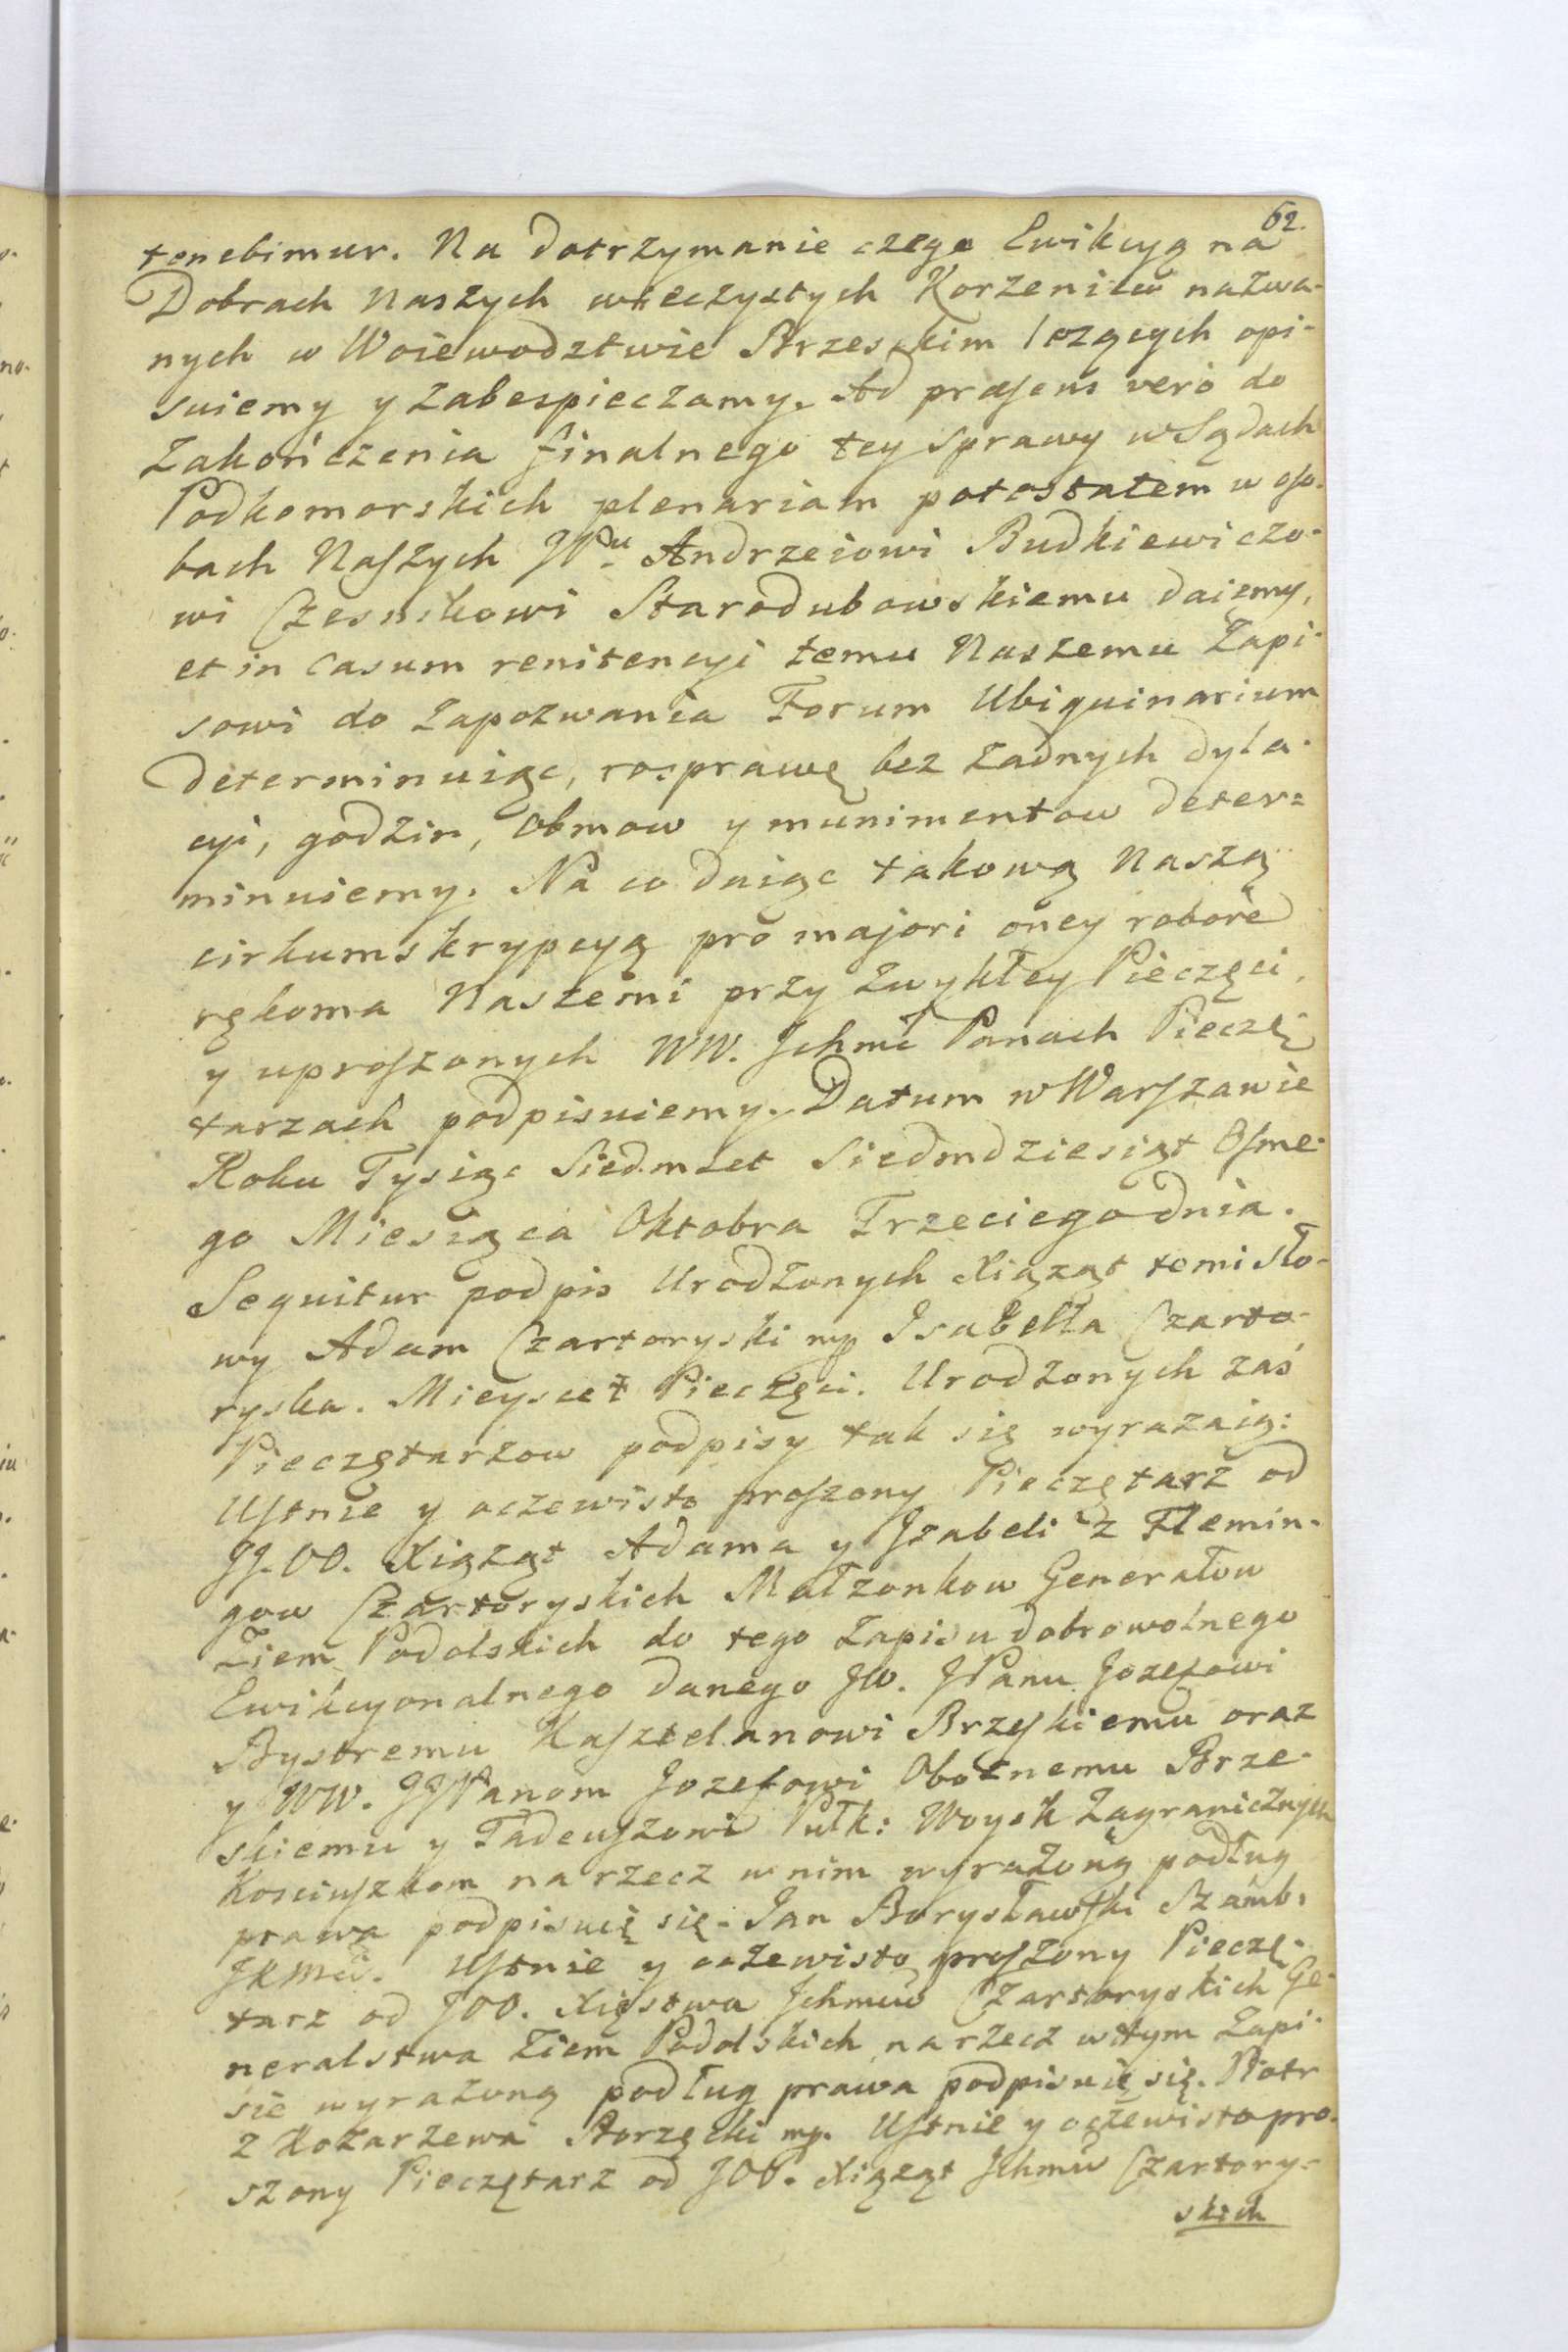 62.
tenebimur. Na dotrzymanie czego Ewikcyą na
Dobrach Naszych wieczystych Korzeniew nazwa-
nych w Woiewodztwie Brzeskim leżących opi-
suiemy y zabespieczamy. Ad præsens vero do
Zakończenia finalnego tey sprawy w Sądach
Podkomorskich plenariam potestatem w oso-
bach Naszych JPu Andrzeiowi Budkiewiczo-
wi Czesnikowi Starodubowskiemu daiemy,
et in Casum renitencyi temu Naszemu Zapi-
sowi do Zapozwania Forum Ubiquinarium
determinuiąc, rosprawę bez żadnych dyla-
cyi, godzin, obmow y munimentow deter=
minuiemy. Na co daiąc takową Naszą
cirkumskrypcyą pro majori oney robore
rękoma Naszemi przy Zwykłey Pieczęci,
y uproszonych WW. Jchmć Panach Pieczę-
tarzach podpisuiemy. Datum w Warszawie
Roku Tysiąc Siedmset Siedmdziesiąt Osme-
go Miesiąca Oktobra Trzeciego dnia.
Sequitur podpis Urodzonych Xiążąt temi sło-
wy Adam Czartoryski mp Isabella Czarto-
ryska. Mieysce Pieczęci. Urodzonych zaś
Pieczętarzow podpisy tak się wyrazaią:
Ustnie y oczewisto proszony Pieczętarz od
JJ.OO. Xiążąt Adama y Jzabeli z Flemin-
gow Czartoryskich Małżonkow Generałow
Ziem Podolskich do tego Zapisu dobrowolnego
Ewikcyonalnego danego JW. JPanu Jozefowi
Bystremu Kasztelanowi Brzeskiemu oraz
y WW. JJPanom Jozefowi Oboznemu Brze-
skiemu y Tadeuszowi Pułk: Woysk Zagranicznych
Kosciuszkom na rzecz w nim wyrażoną podług
prawa podpisuię się. Jan Borysławski Szamb:
JKMci. Ustnie y oczewisto proszony Pieczę-
tarz od JOO. Xięstwa Jchmciow Czartoryskich Ge-
neralstwa Ziem Podolskich na rzecz w tym Zapi-
sie wyrażoną podług prawa podpisuię się. Piotr
z Kożarzewa mp. Ustnie y oczewisto pro-
szony Pieczętarz od JOO. Xiążąt Jchmciow Czartory-
skich